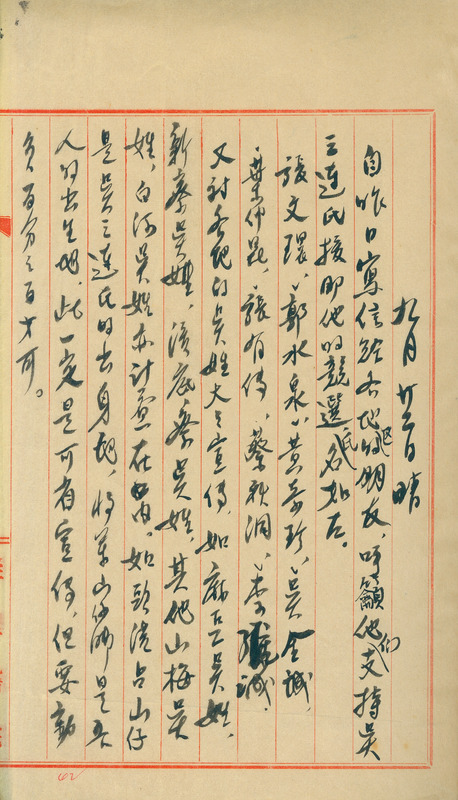 九月廿三日 晴
自昨日寫信給各地區的朋友，呼籲他們支持吳
三連氏接即他的競選，氏名如左。
張文環、郭水泉、黃奇珍、吳金城、
葉仲昆、張有傳、蔡秋洞、李誠、
又對各地的吳姓大大宣傳，如麻豆吳姓，
新寮吳姓，湳底寮吳姓，其他山梅吳
姓，白河吳姓亦計画在內，如頭港占山仔
是吳三連氏的出身地，將軍山仔腳是吾
人的出生地，此一定是可有宣傳，但要努
力百分之百才可。
42